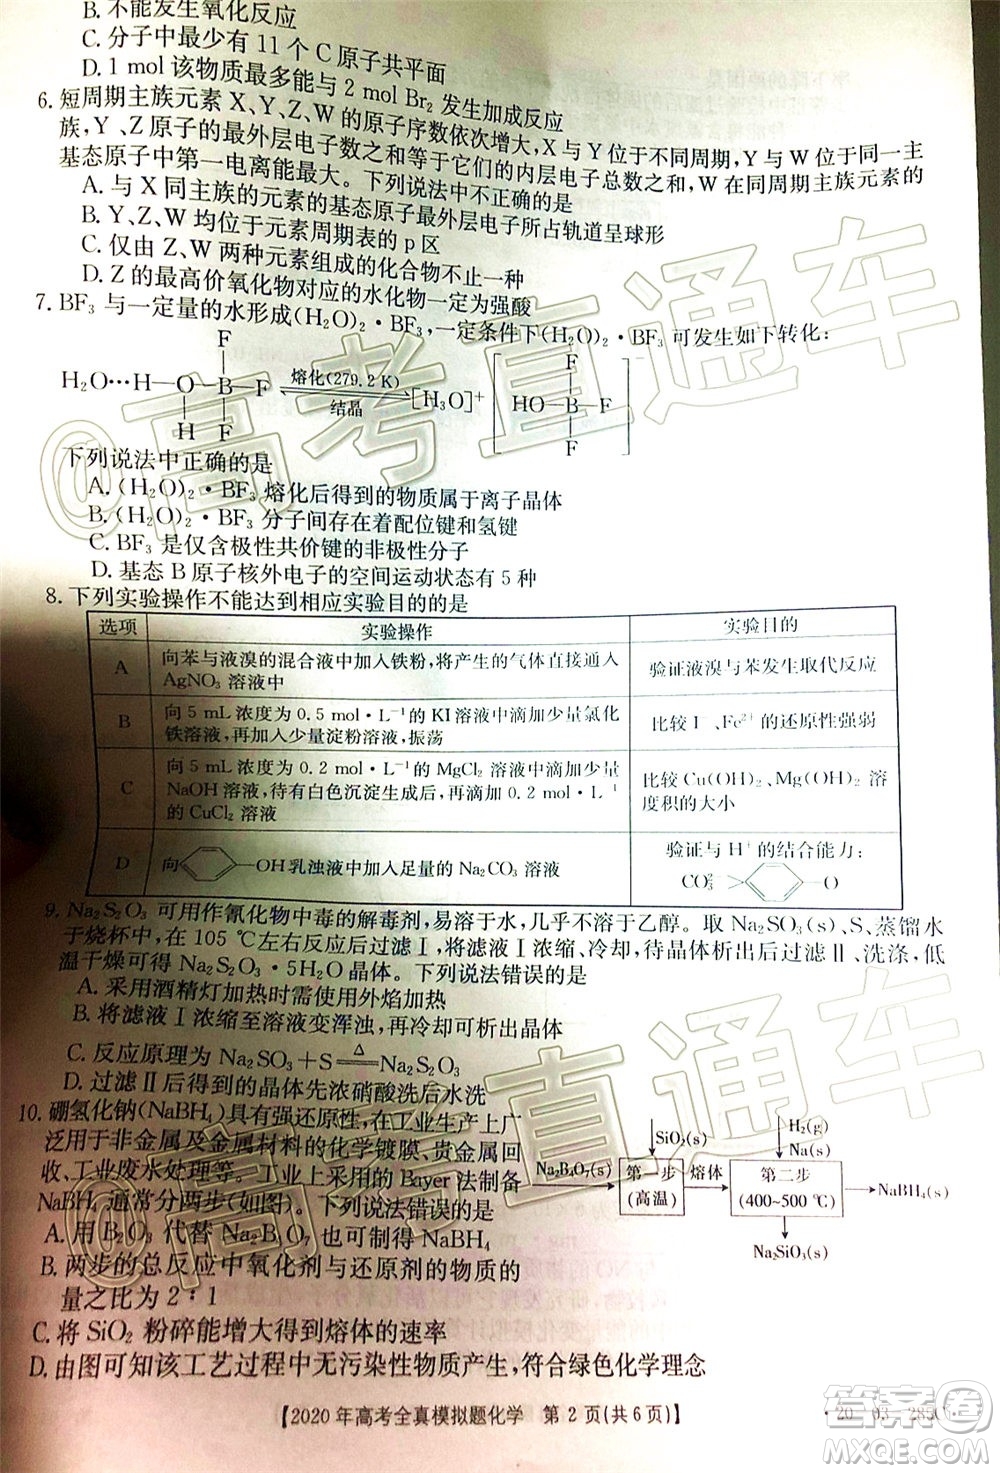 B. 不能发生氧化反应
C. 分子中最少有 11 个 C 原子共平面
D. 1 mol 该物质最多能与 2 mol Br₂ 发生加成反应
6. 短周期主族元素 X、Y、Z、W 的原子序数依次增大，X 与 Y 位于不同周期，Y 与 W 位于同一主
族，Y、Z 原子的最外层电子数之和等于它们的内层电子总数之和，W 在同周期主族元素的
基态原子中第一电离能最大。下列说法中不正确的是
A. 与 X 同主族的元素的基态原子最外层电子所占轨道呈球形
B. Y、Z、W 均位于元素周期表的 p 区
C. 仅由 Z、W 两种元素组成的化合物不止一种
D. Z 的最高价氧化物对应的水化物一定为强酸
7. BF₃ 与一定量的水形成(H₂O)₂·BF₃，一定条件下(H₂O)₂·BF₃ 可发生如下转化：
F F
H₂O···H—O—B—F 熔化(279.2 K) 结晶 [H₃O]⁺ [HO—B—F]⁻
H F F
下列说法中正确的是
A. (H₂O)₂·BF₃ 熔化后得到的物质属于离子晶体
B. (H₂O)₂·BF₃ 分子间存在着配位键和氢键
C. BF₃ 是仅含极性共价键的非极性分子
D. 基态 B 原子核外电子的空间运动状态有 5 种
8. 下列实验操作不能达到相应实验目的的是
选项 实验操作 实验目的
A 向苯与液溴的混合液中加入铁粉，将产生的气体直接通入 验证液溴与苯发生取代反应
AgNO₃ 溶液中
B 向 5 mL 浓度为 0.5 mol·L⁻¹的 KI 溶液中滴加少量氯化 比较 I⁻、Fe²⁺的还原性强弱
铁溶液，再加入少量淀粉溶液，振荡
C 向 5 mL 浓度为 0.2 mol·L⁻¹的 MgCl₂ 溶液中滴加少量 比较 Cu(OH)₂、Mg(OH)₂ 溶
NaOH 溶液，待有白色沉淀生成后再滴加 0.2 mol·L⁻¹ 度积的大小
的 CuCl₂ 溶液
D 向 —OH 乳浊液中加入足量的 Na₂CO₃ 溶液 验证与 H⁺的结合能力：
CO₃²⁻> —O⁻
9. Na₂S₂O₃ 可用作氰化物中毒的解毒剂，易溶于水，几乎不溶于乙醇。取 Na₂SO₃(s)、S、蒸馏水
于烧杯中，在 105 ℃左右反应后过滤Ⅰ，将滤液Ⅰ浓缩、冷却，待晶体析出后过滤Ⅱ、洗涤，低
温干燥可得 Na₂S₂O₃·5H₂O 晶体。下列说法错误的是
A. 采用酒精灯加热时需采用隔网加热
B. 将滤液Ⅰ浓缩至溶液变浑浊，再冷却可析出晶体
C. 反应原理为 Na₂SO₃+S══Na₂S₂O₃ △
D. 过滤Ⅱ后得到的晶体先浓硝酸洗后水洗
10. 硼氢化钠(NaBH₄)具有强还原性，在工业生产上广
泛用于非金属及金属材料的化学镀膜、贵金属回
收、工业废水处理等。工业上采用的 Bayer 法制备
NaBH₄ 通常分两步(如图)。下列说法错误的是
A. 用 B₂O₃ 代替 Na₂B₄O₇ 也可制得 NaBH₄
B. 两步的总反应中氧化剂与还原剂的物质的
量之比为 2∶1
C. 将 SiO₂ 粉碎能增大得到熔体的速率
D. 由图可知该工艺过程中无污染性物质产生，符合绿色化学理念
SiO₂(s) H₂(g) Na(s)
Na₂B₄O₇(s) 第一步 (高温) 熔体 第二步 (400~500 ℃) NaBH₄(s)
Na₂SiO₃(s)
【2020 年高考全真模拟题化学 第 2 页(共 6 页)】
·20-03-285C·
@高考直通车
@高考直通车
答案圈
MXQE.COM